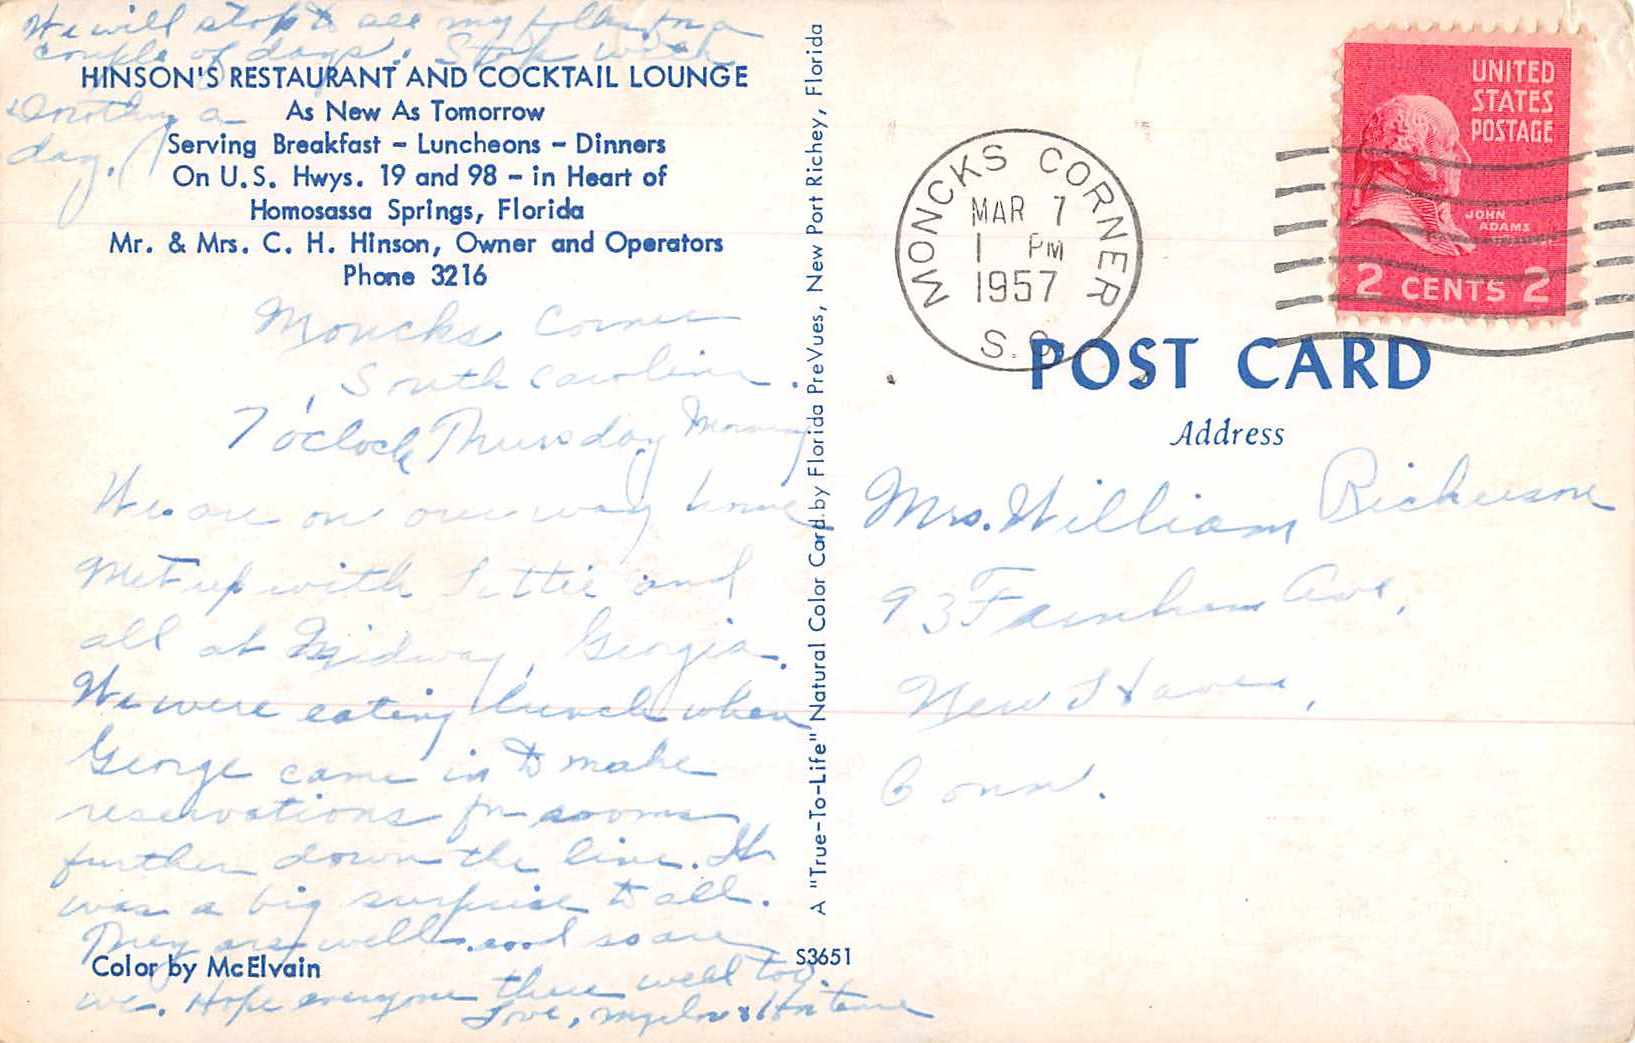 We will stop to see my folks for a
couple of days. Stop with
Dorothy a
day.
HINSON'S RESTAURANT AND COCKTAIL LOUNGE
As New As Tomorrow
Serving Breakfast - Luncheons - Dinners
On U.S. Hwys. 19 and 98 - in Heart of
Homosassa Springs, Florida
Mr. & Mrs. C. H. Hinson, Owner and Operators
Phone 3216
Moncks Corner
South Carolina.
7 o'clock Thursday Morning
We are on our way home
Met up with Lottie and
all at Midway, Georgia.
We were eating lunch when
George came in to make
reservations for rooms
further down the line. It
was a big surprise to all.
They are well and so are
we. Hope everyone there well too.
Love,
Color by McElvain
A "True-To-Life" Natural Color Card by Florida PreVues, New Port Richey, Florida
S3651
MONCKS CORNER
MAR 7
1 PM
1957
S.C.
UNITED
STATES
POSTAGE
JOHN
ADAMS
2 CENTS 2
POST CARD
Address
Mrs. William Rickerson
93 Farnham Ave,
New Haven,
Conn.